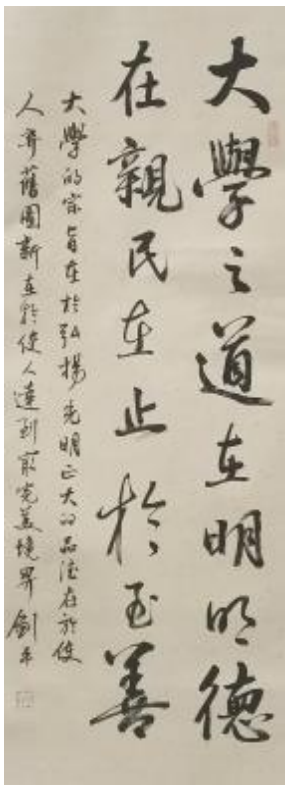 大學之道在明明德
在親民在止於至善
大學的宗旨在於弘揚光明正大的品德在於使
人弃舊圖新在於使人達到最完美境界 劍平